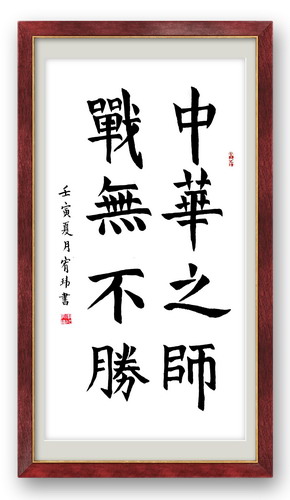 中華之師
戰無不勝
壬寅夏月宥玮書